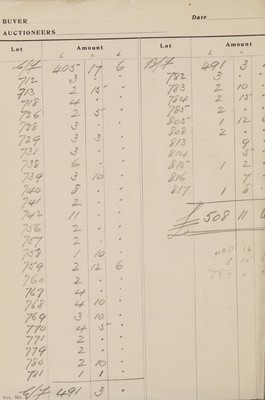 BUYER
AUCTIONEERS
Date
Lot Amount
£ s d
B/f 405 17 6
712 3 . .
713 2 15 .
718 4 . .
726 2 5 .
728 3 . .
729 3 3 .
731 3 . .
738 6 . .
739 3 10 .
740 8 . .
741 2 . .
742 11 . .
756 2 . .
757 2 . .
758 1 10 .
759 2 12 6
760 2 . .
767 4 . .
768 4 10 .
769 3 10 .
770 4 5 .
771 2 . .
779 2 . .
780 2 10 .
781 1 1 .
C/f 491 3 .
Lot Amount
B/f 491 3 .
782 3 . .
783 2 10 .
784 2 15 .
785 2 . .
805 1 12 6
808 2 . .
813 9 .
814 5 .
815 1 2 .
816 7 .
817 1 8 .
£ 508 11 6